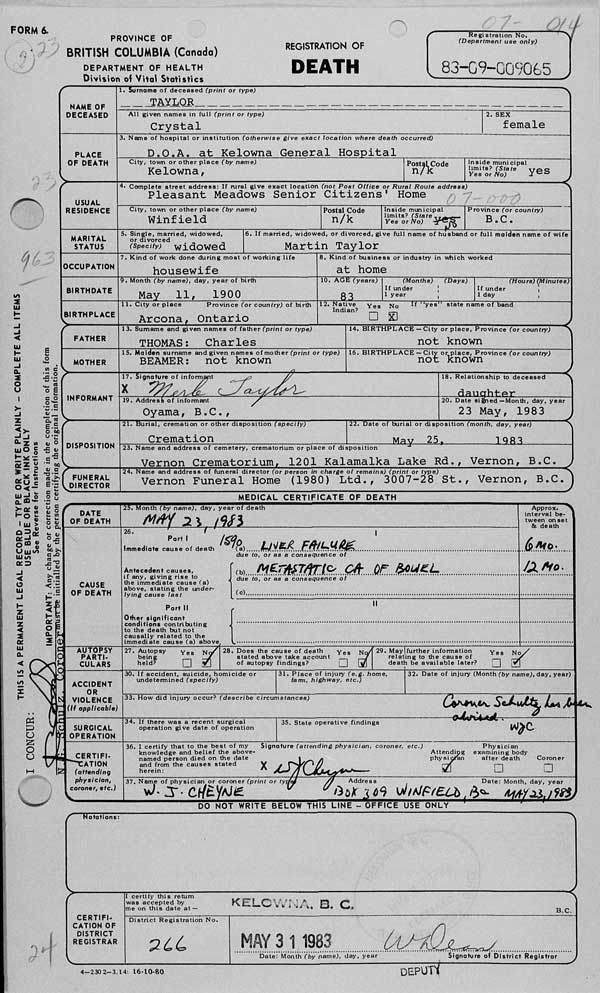 FORM 6.
07- 014
PROVINCE OF
BRITISH COLUMBIA (Canada)
DEPARTMENT OF HEALTH
Division of Vital Statistics
REGISTRATION OF
DEATH
Registration No.
(Department use only)
83-09-009065
NAME OF DECEASED
1. Surname of deceased (print or type)
TAYLOR
All given names in full (print or type)
2. SEX
Crystal
female
PLACE OF DEATH
3. Name of hospital or institution (otherwise give exact location where death occurred)
D.O.A. at Kelowna General Hospital
City, town or other place (by name)
Postal Code
Inside municipal limits? (State Yes or No)
Kelowna,
n/k
yes
USUAL RESIDENCE
4. Complete street address: If rural give exact location (not Post Office or Rural Route address)
Pleasant Meadows Senior Citizens' Home
07-000
City, town or other place (by name)
Postal Code
Inside municipal limits? (State Yes or No)
Province (or country)
Winfield
n/k
yes
B.C.
MARITAL STATUS
5. Single, married, widowed, or divorced (Specify)
widowed
6. If married, widowed, or divorced, give full name of husband or full maiden name of wife
Martin Taylor
OCCUPATION
7. Kind of work done during most of working life
8. Kind of business or industry in which worked
housewife
at home
BIRTHDATE
9. Month (by name), day, year of birth
10. AGE (years)
(Months) (Days)
(Hours) (Minutes)
If under 1 year
If under 1 day
May 11, 1900
83
BIRTHPLACE
11. City or place
Province (or country) of birth
12. Native Indian?
Yes No
If "yes" state name of band
Arcona, Ontario
X
FATHER
13. Surname and given names of father (print or type)
14. BIRTHPLACE – City or place, Province (or country)
THOMAS: Charles
not known
MOTHER
15. Maiden surname and given names of mother (print or type)
16. BIRTHPLACE – City or place, Province (or country)
BEAMER: not known
not known
INFORMANT
17. Signature of informant
18. Relationship to deceased
X Merle Taylor
daughter
19. Address of informant
20. Date signed – Month, day, year
Oyama, B.C.,
23 May, 1983
DISPOSITION
21. Burial, cremation or other disposition (specify)
22. Date of burial or disposition (month, day, year)
Cremation
May 25, 1983
23. Name and address of cemetery, crematorium or place of disposition
Vernon Crematorium, 1201 Kalamalka Lake Rd., Vernon, B.C.
FUNERAL DIRECTOR
24. Name and address of funeral director (or person in charge of remains) (print or type)
Vernon Funeral Home (1980) Ltd., 3007-28 St., Vernon, B.C.
MEDICAL CERTIFICATE OF DEATH
DATE OF DEATH
25. Month (by name), day, year of death
MAY 23, 1983
Approx. interval between onset & death
CAUSE OF DEATH
26.
Part I
I
Immediate cause of death
1590
(a) LIVER FAILURE
6 MO.
due to, or as a consequence of
Antecedent causes, if any, giving rise to the immediate cause (a) above, stating the underlying cause last
(b) METASTATIC CA OF BOWEL
12 MO.
due to, or as a consequence of
(c)
Part II
II
Other significant conditions contributing to the death but not causally related to the immediate cause (a) above
AUTOPSY PARTICULARS
27. Autopsy being held?
Yes No
28. Does the cause of death stated above take account of autopsy findings?
Yes No
29. May further information relating to the cause of death be available later?
Yes No
ACCIDENT OR VIOLENCE (If applicable)
30. If accident, suicide, homicide or undetermined (specify)
31. Place of injury (e.g. home, farm, highway, etc.)
32. Date of injury (Month (by name), day, year)
33. How did injury occur? (describe circumstances)
Coroner Schultz has been
advised.
WJC
SURGICAL OPERATION
34. If there was a recent surgical operation give date of operation
35. State operative findings
CERTIFICATION (attending physician, coroner, etc.)
36. I certify that to the best of my knowledge and belief the above-named person died on the date and from the causes stated herein:
Signature (attending physician, coroner, etc.)
X WJ Cheyne
Attending physician
Physician examining body after death
Coroner
37. Name of physician or coroner (print or type)
Address
Date: Month, day, year
W. J. CHEYNE
BOX 309 WINFIELD, BC
MAY 23, 1983
DO NOT WRITE BELOW THIS LINE – OFFICE USE ONLY
Notations:
CERTIFICATION OF DISTRICT REGISTRAR
I certify this return was accepted by me on this date at –
KELOWNA, B. C.
B.C.
District Registration No.
266
MAY 31 1983
W Dean
Date: Month (by name), day, year
Signature of District Registrar
4-2302-3.14: 16-10-80
DEPUTY
THIS IS A PERMANENT LEGAL RECORD – TYPE OR WRITE PLAINLY – COMPLETE ALL ITEMS
USE BLUE OR BLACK INK ONLY
See Reverse for Instructions
IMPORTANT: Any change or correction made in the completion of this form
must be initialled by the person certifying the original information.
I CONCUR:
Schultz, Coroner
23
963
24